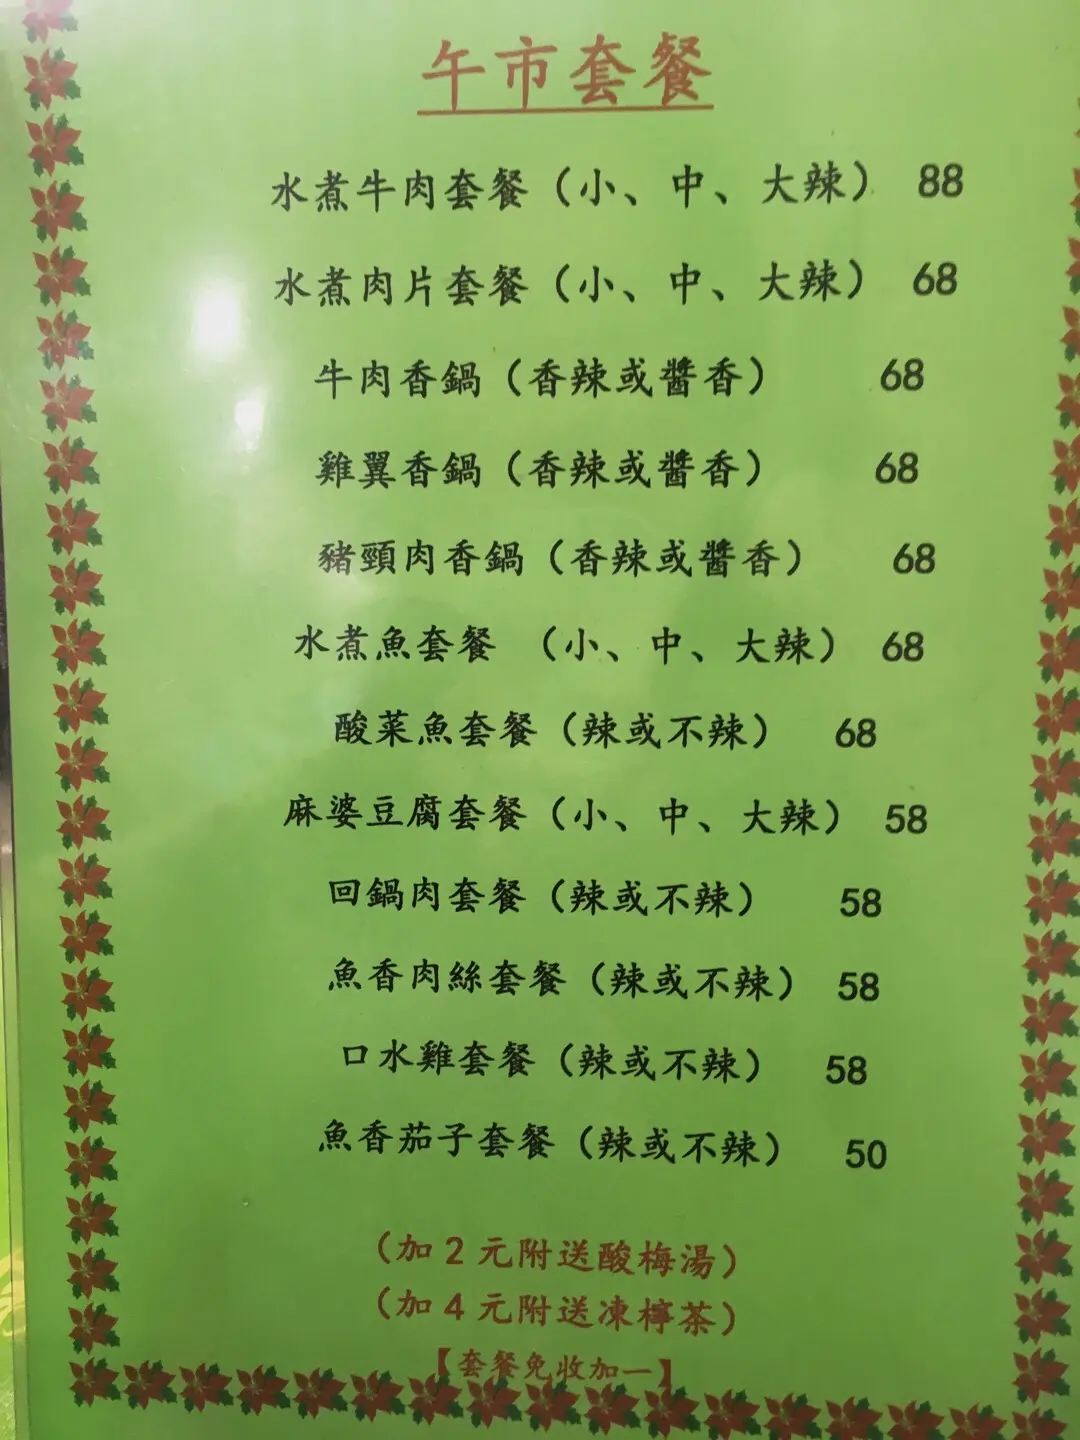 午市套餐
水煮牛肉套餐（小、中、大辣） 88
水煮肉片套餐（小、中、大辣） 68
牛肉香鍋（香辣或醬香） 68
雞翼香鍋（香辣或醬香） 68
豬頸肉香鍋（香辣或醬香） 68
水煮魚套餐 （小、中、大辣） 68
酸菜魚套餐（辣或不辣） 68
麻婆豆腐套餐（小、中、大辣） 58
回鍋肉套餐（辣或不辣） 58
魚香肉絲套餐（辣或不辣） 58
口水雞套餐（辣或不辣） 58
魚香茄子套餐（辣或不辣） 50
（加2元附送酸梅湯）
（加4元附送凍檸茶）
【套餐免收加一】